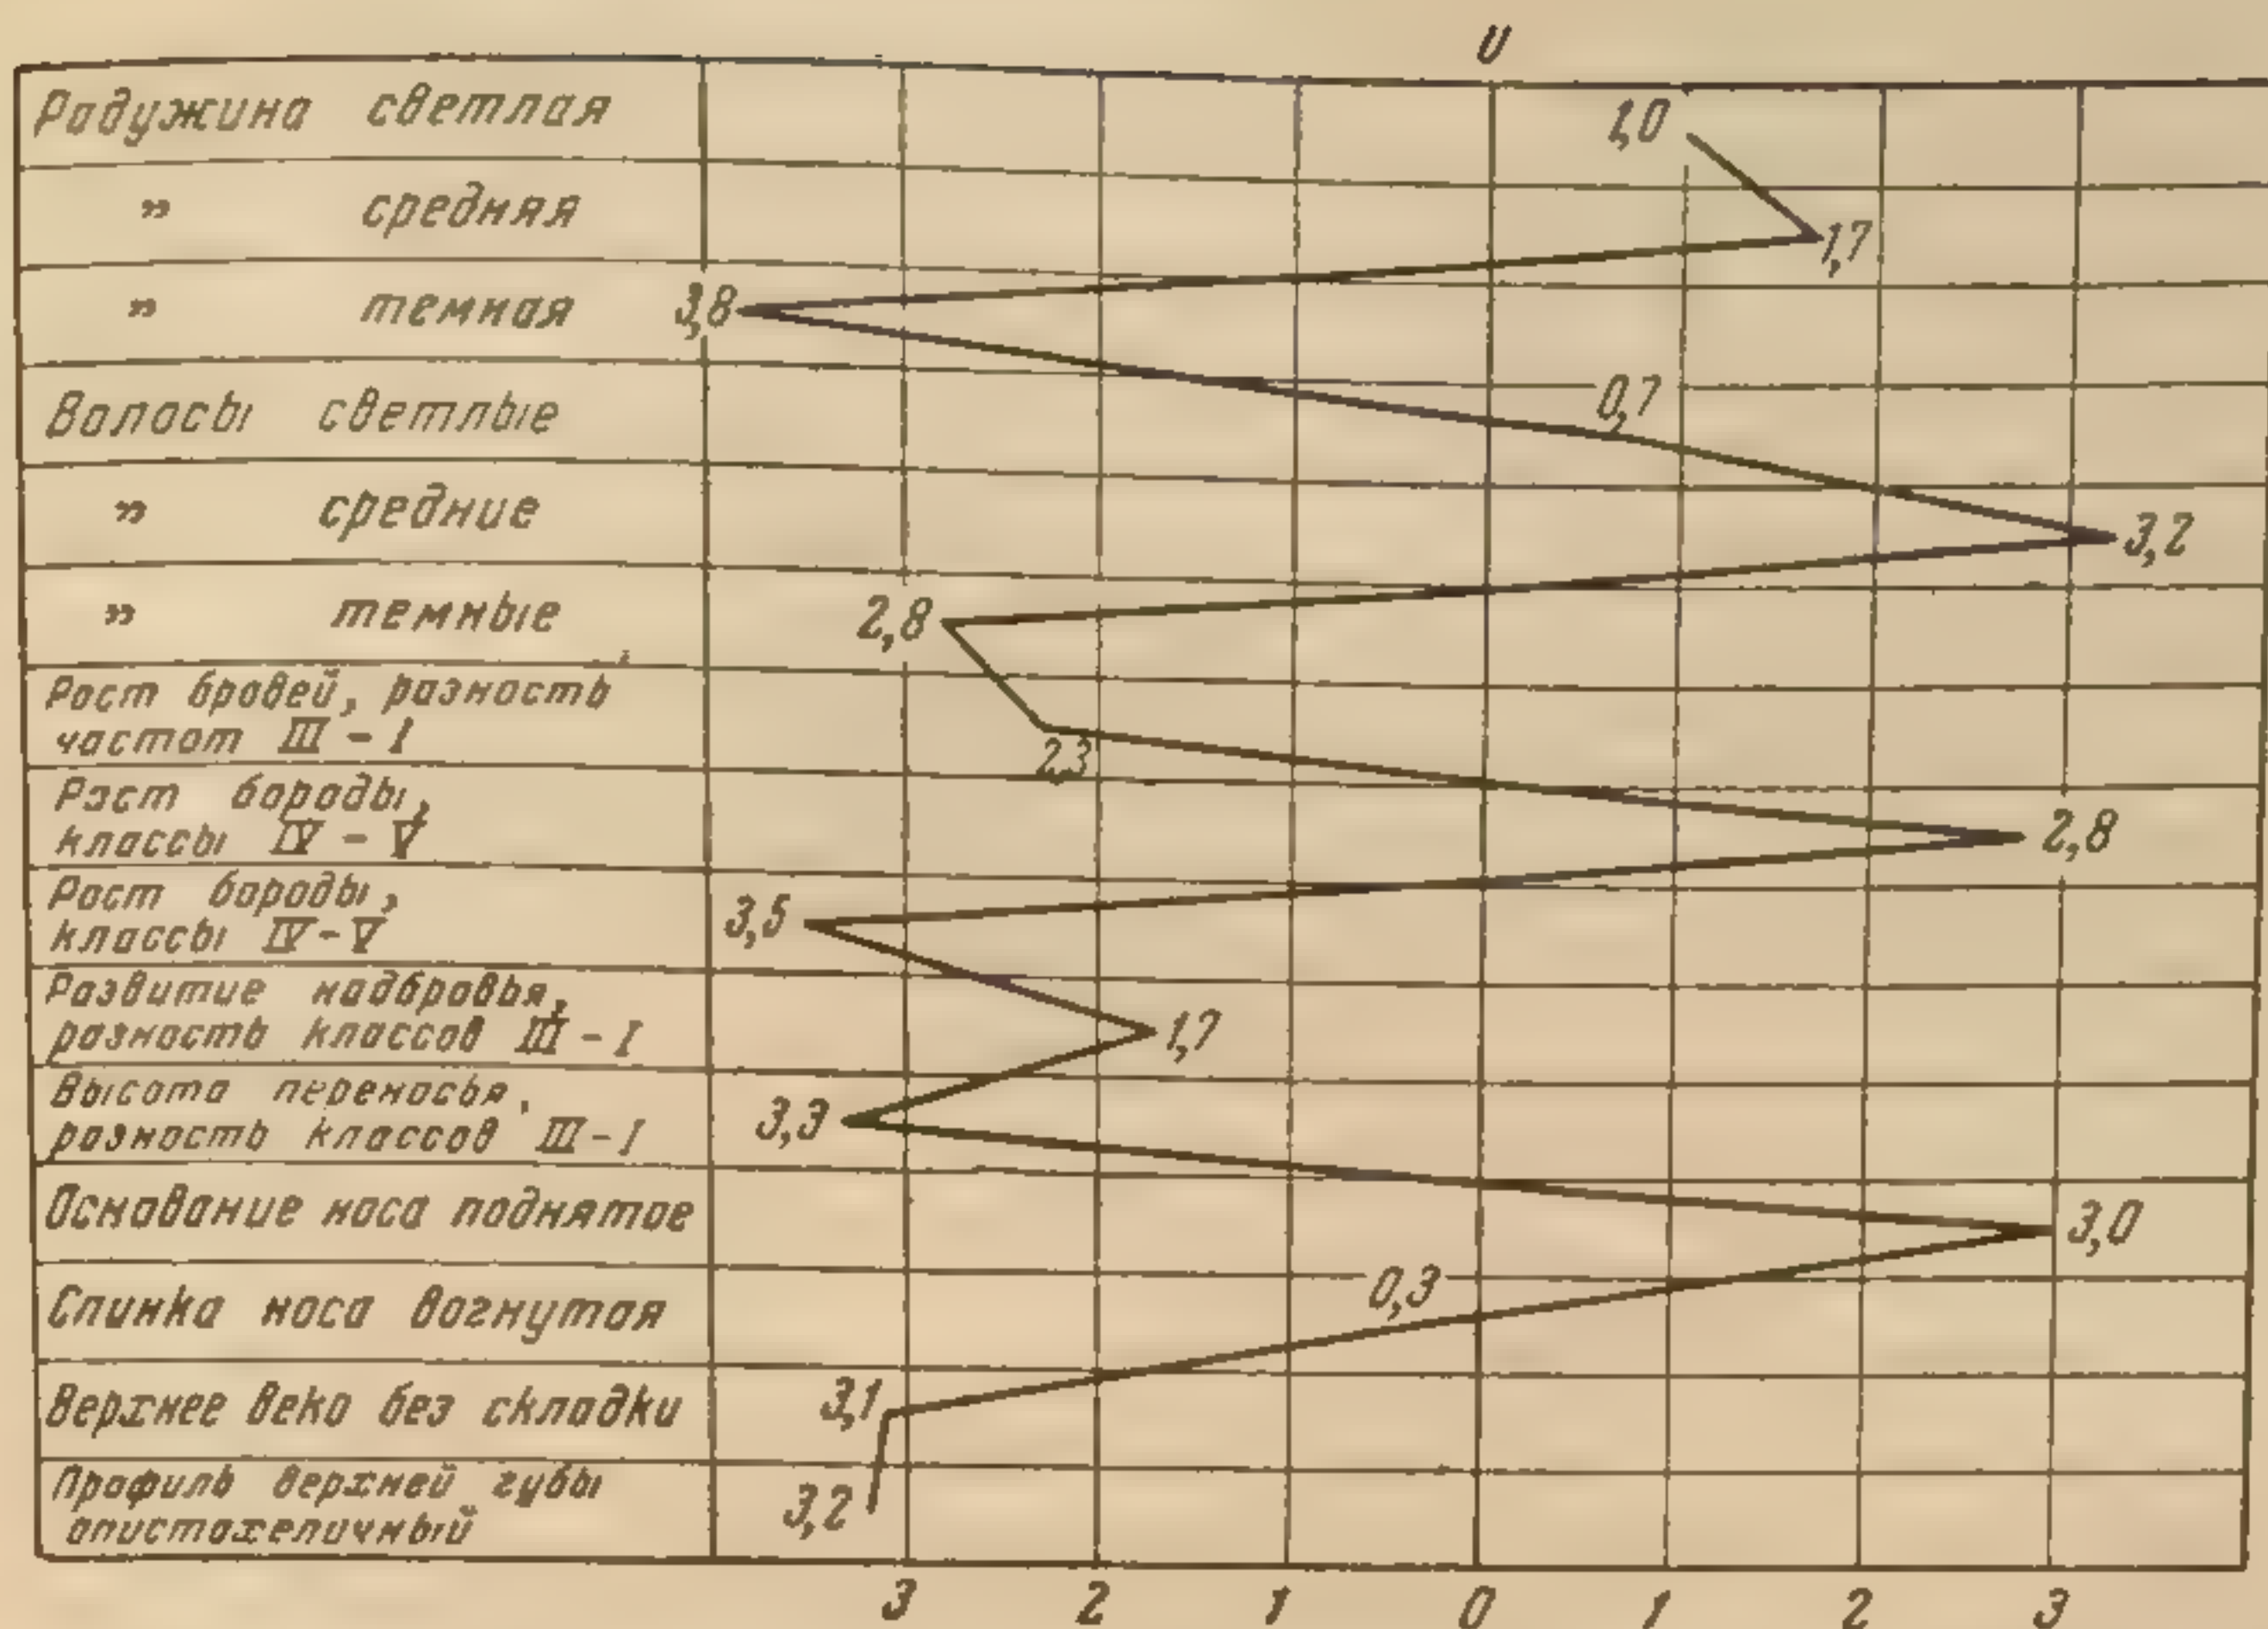 U
Радужина светлая 1,0
" средняя 1,7
" темная 3,8
Волосы светлые 0,7
" средние 3,2
" темные 2,8
Рост бровей, разность
частот III - I 2,3
Рост бороды,
классы IV - V 2,8
Рост бороды,
классы IV - V 3,5
Развитие надбровья,
разность классов III - I 1,7
Высота переносья,
разность классов III - I 3,3
Основание носа поднятое 3,0
Спинка носа вогнутая 0,3
Верхнее веко без складки 3,1
Профиль верхней губы
опистохеличный 3,2
3 2 1 0 1 2 3